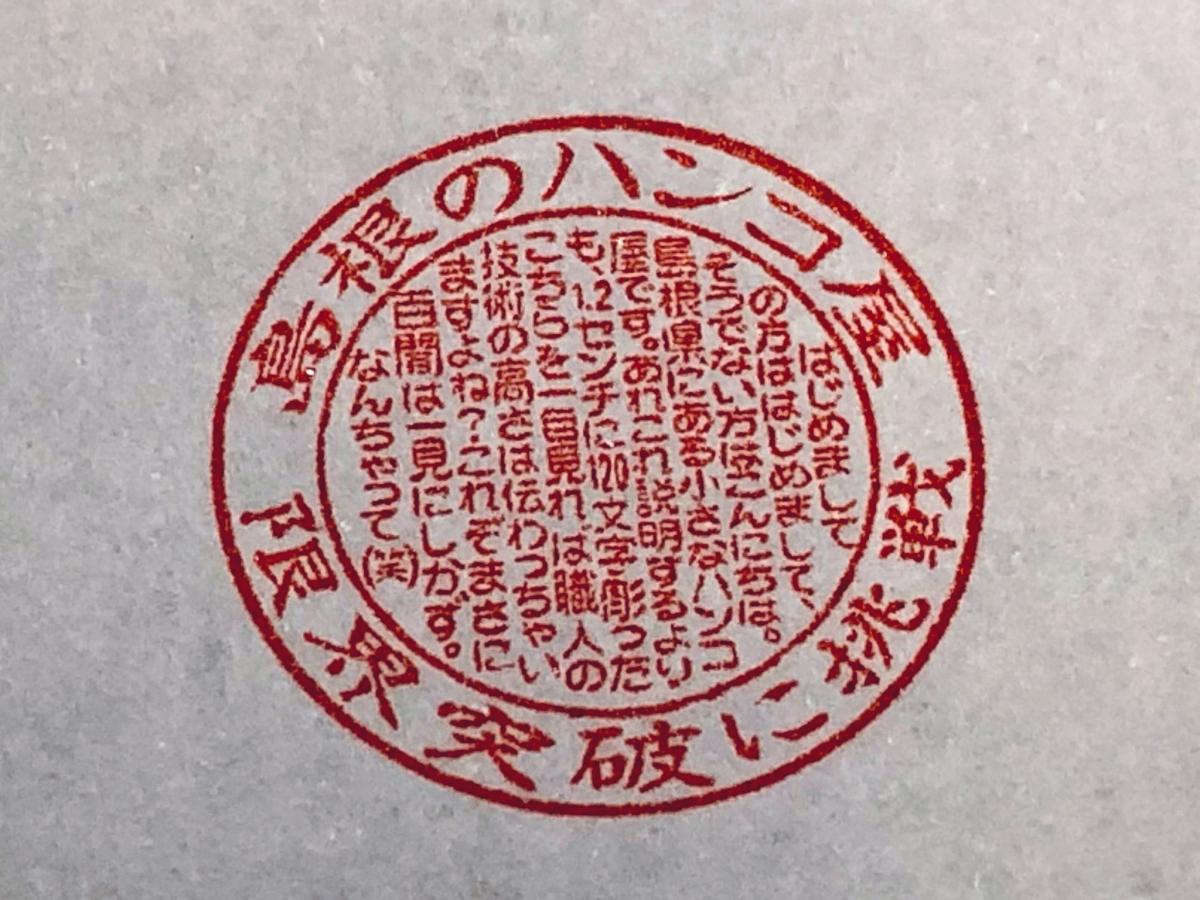 島根のハンコ屋
限界突破に挑戦
はじめまして
の方ははじめまして、
そうでない方はこんにちは。
島根県にある小さなハンコ
屋です。あれこれ説明するより
も、1.2センチに120文字彫った
こちらを一目見れば職人の
技術の高さは伝わっちゃい
ますよね？これぞまさに
百聞は一見にしかず。
なんちゃって(笑)